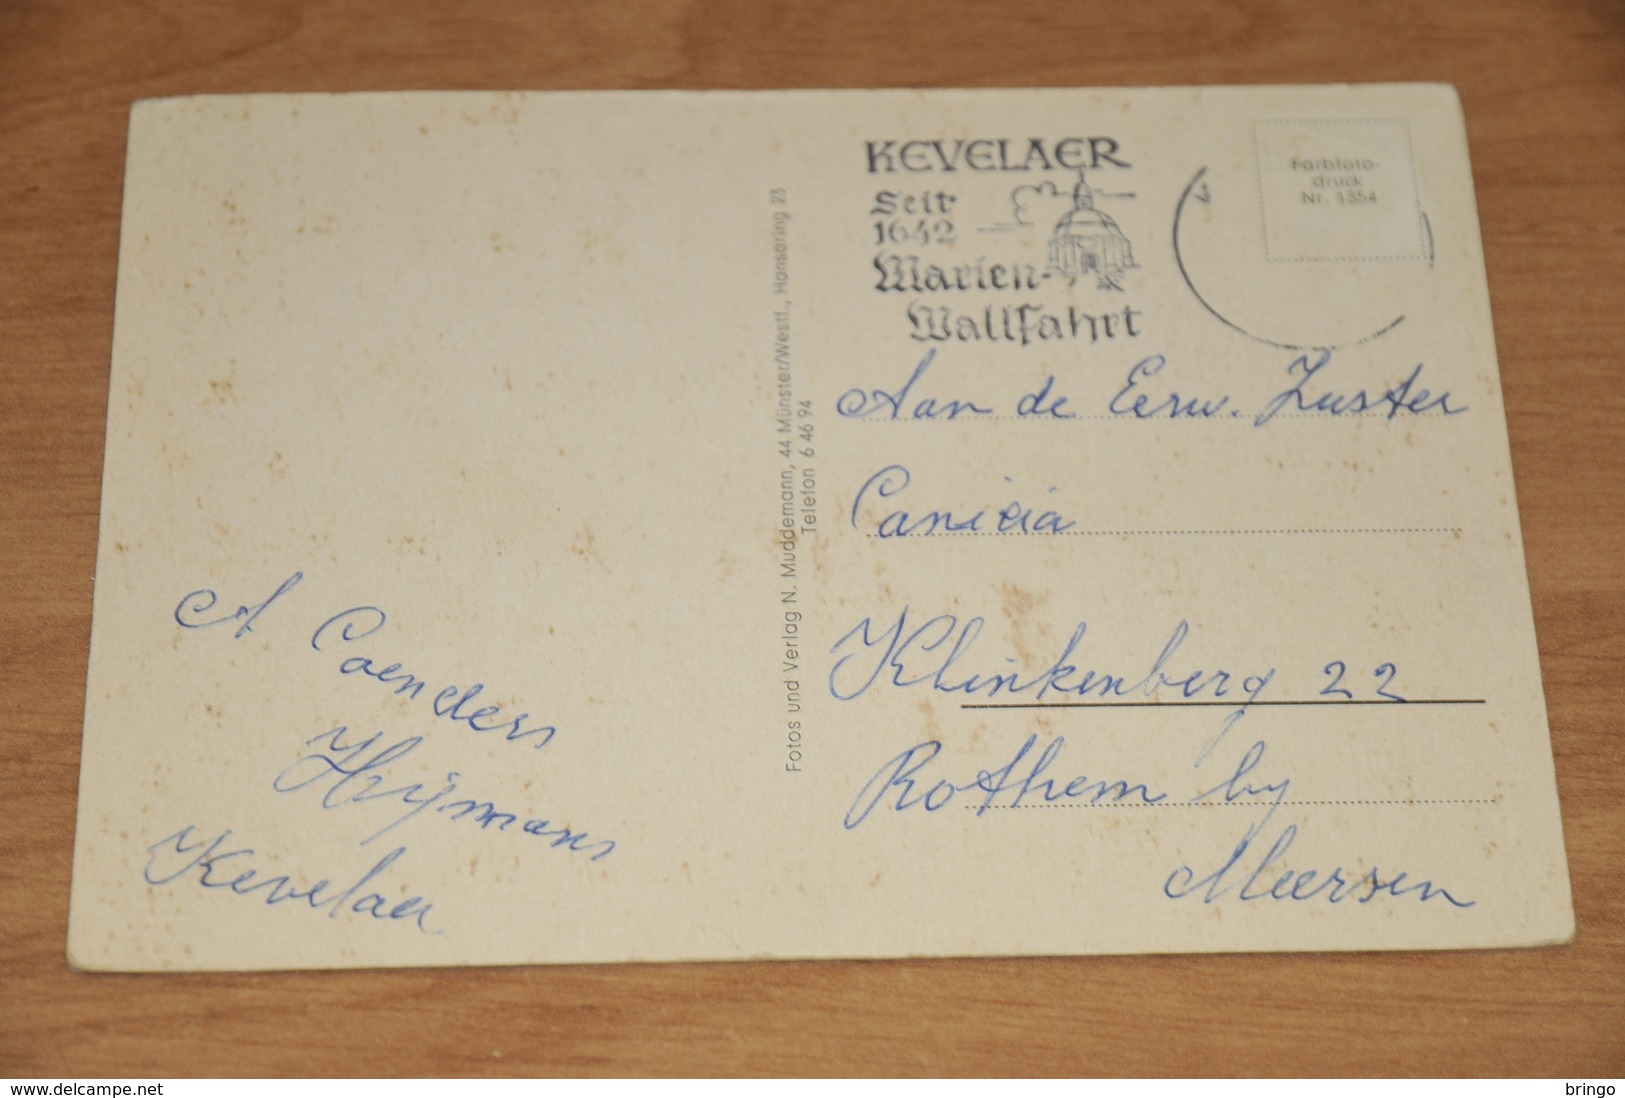 KEVELAER
Seit
1642
Marien-
Wallfahrt
Farbfoto-
druck
Nr. 1354
Aan de Eerw. Zuster
Canicia
Klinkenberg 22
Rothem by
Meersen
Fotos und Verlag N. Muddemann, 44 Münster/Westf., Hansaring 23
Telefon 6 46 94
A Coenders
Heijmans
Kevelaer
www.delcampe.net
bringo